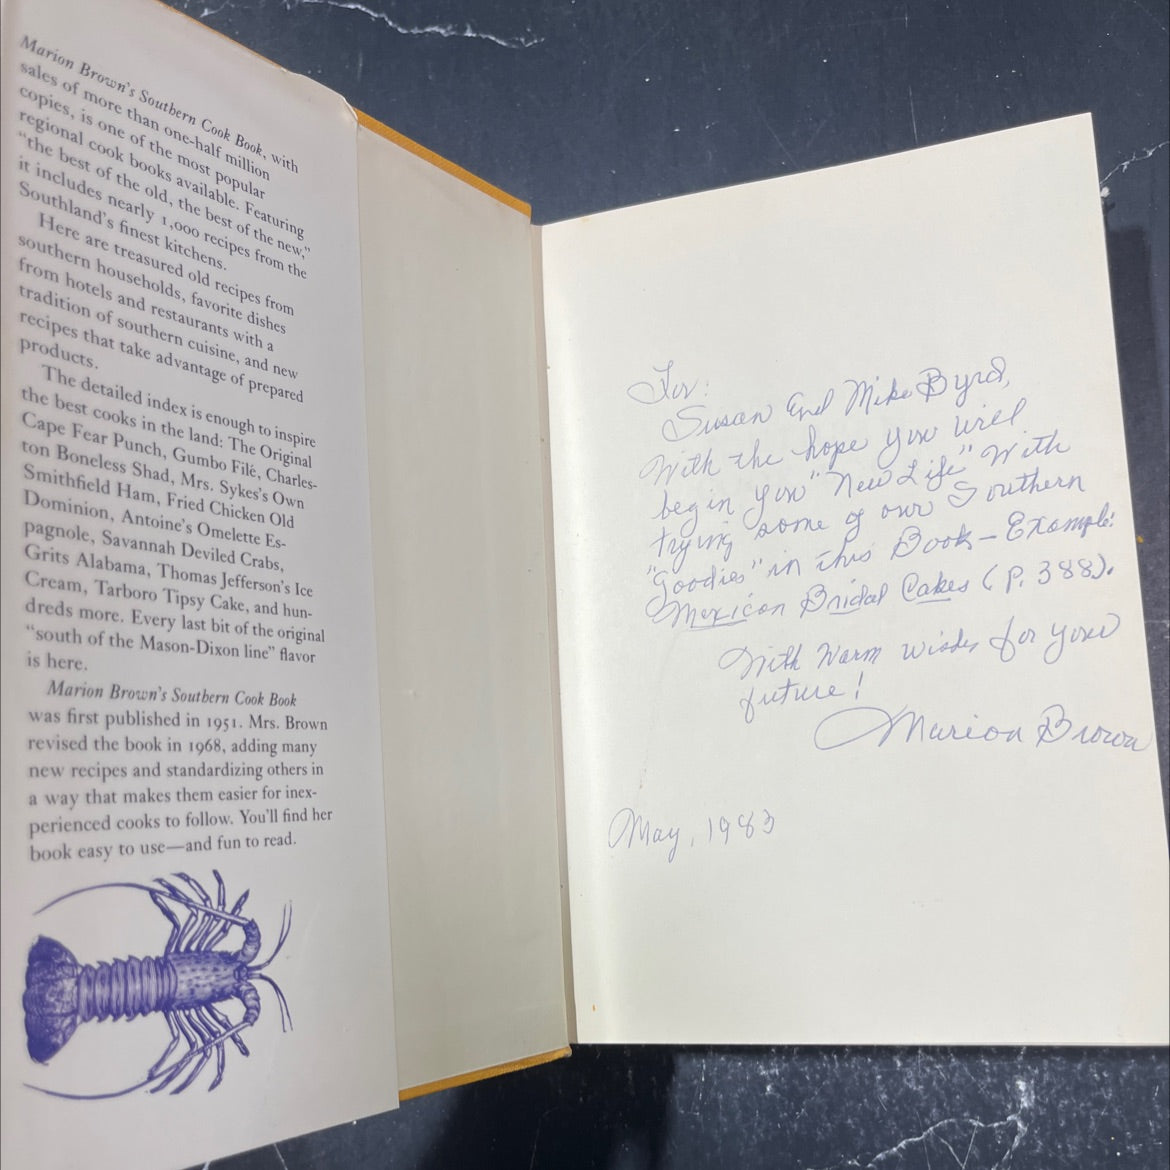 Marion Brown's Southern Cook Book, with
sales of more than one-half million
copies, is one of the most popular
regional cook books available. Featuring
"the best of the old, the best of the new,"
it includes nearly 1,000 recipes from the
Southland's finest kitchens.
Here are treasured old recipes from
southern households, favorite dishes
from hotels and restaurants with a
tradition of southern cuisine, and new
recipes that take advantage of prepared
products.
The detailed index is enough to inspire
the best cooks in the land: The Original
Cape Fear Punch, Gumbo Filé, Charles-
ton Boneless Shad, Mrs. Sykes's Own
Smithfield Ham, Fried Chicken Old
Dominion, Antoine's Omelette Es-
pagnole, Savannah Deviled Crabs,
Grits Alabama, Thomas Jefferson's Ice
Cream, Tarboro Tipsy Cake, and hun-
dreds more. Every last bit of the original
"south of the Mason-Dixon line" flavor
is here.
Marion Brown's Southern Cook Book
was first published in 1951. Mrs. Brown
revised the book in 1968, adding many
new recipes and standardizing others in
a way that makes them easier for inex-
perienced cooks to follow. You'll find her
book easy to use—and fun to read.
For:
Susan And Mike Byrd,
With the hope you will
begin your "New Life" With
trying some of our Southern
"Goodies" in this Book – Example:
Mexican Bridal Cakes (P. 388).
With Warm wishes for your
future!
Marion Brown
May, 1983